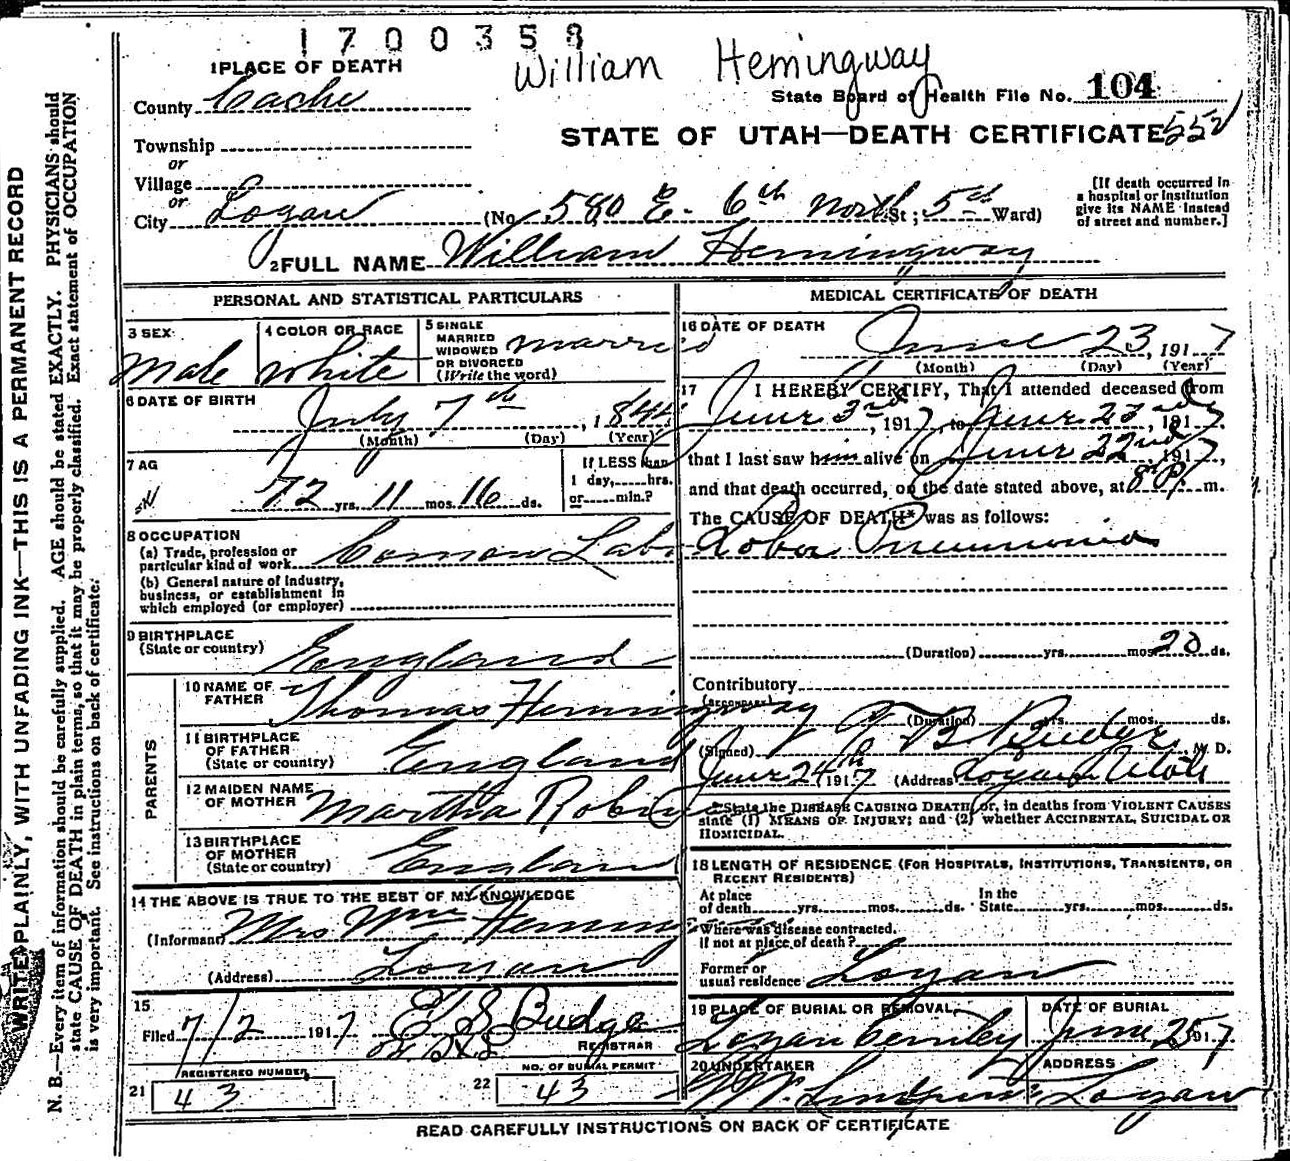 1700358
William Hemingway
1 PLACE OF DEATH
County Cache
State Board of Health File No. 104
STATE OF UTAH—DEATH CERTIFICATE 552
Township
or
Village
or
City Logan (No. 580 E. 6th North St; 5th Ward)
[If death occurred in a hospital or institution give its NAME instead of street and number.]
2 FULL NAME William Hemingway
PERSONAL AND STATISTICAL PARTICULARS
3 SEX Male
4 COLOR OR RACE White
5 SINGLE MARRIED WIDOWED OR DIVORCED (Write the word) Married
6 DATE OF BIRTH
July 7th, 1844
(Month) (Day) (Year)
7 AG
72 yrs. 11 mos. 16 ds.
If LESS than 1 day, hrs. or min.?
8 OCCUPATION
(a) Trade, profession or particular kind of work Comon Labr
(b) General nature of industry, business, or establishment in which employed (or employer)
9 BIRTHPLACE (State or country) England
PARENTS
10 NAME OF FATHER Thomas Hemingway
11 BIRTHPLACE OF FATHER (State or country) England
12 MAIDEN NAME OF MOTHER Martha
13 BIRTHPLACE OF MOTHER (State or country) England
14 THE ABOVE IS TRUE TO THE BEST OF MY KNOWLEDGE
(Informant) Mrs Wm Heming
(Address) Logan
15
Filed 7/2 1917 E S Budge
REGISTRAR
21 REGISTERED NUMBER 43
22 NO. OF BURIAL PERMIT 43
MEDICAL CERTIFICATE OF DEATH
16 DATE OF DEATH
June 23, 1917
(Month) (Day) (Year)
17 I HEREBY CERTIFY, That I attended deceased from
June 3rd, 1917, to June 23rd, 1917,
that I last saw him alive on June 22nd, 1917,
and that death occurred, on the date stated above, at 8 P. m.
The CAUSE OF DEATH* was as follows:
Lobar Pneumonia
(Duration) yrs. mos. 20 ds.
Contributory
(SECONDARY)
(Duration) yrs. mos. ds.
(Signed) B Budge, M. D.
June 24th 1917 (Address) Logan Utah
*State the DISEASE CAUSING DEATH, or, in deaths from VIOLENT CAUSES
state (1) MEANS OF INJURY; and (2) whether ACCIDENTAL, SUICIDAL OR
HOMICIDAL.
18 LENGTH OF RESIDENCE (FOR HOSPITALS, INSTITUTIONS, TRANSIENTS, OR
RECENT RESIDENTS)
At place of death yrs. mos. ds. In the State yrs. mos. ds.
Where was disease contracted.
if not at place of death?
Former or usual residence Logan
19 PLACE OF BURIAL OR REMOVAL DATE OF BURIAL
Logan June 25 1917
20 UNDERTAKER ADDRESS
Logan
READ CAREFULLY INSTRUCTIONS ON BACK OF CERTIFICATE
WRITE PLAINLY, WITH UNFADING INK—THIS IS A PERMANENT RECORD
N. B.—Every item of information should be carefully supplied. AGE should be stated EXACTLY. PHYSICIANS should
state CAUSE OF DEATH in plain terms, so that it may be properly classified. Exact statement of OCCUPATION
is very important. See instructions on back of certificate.